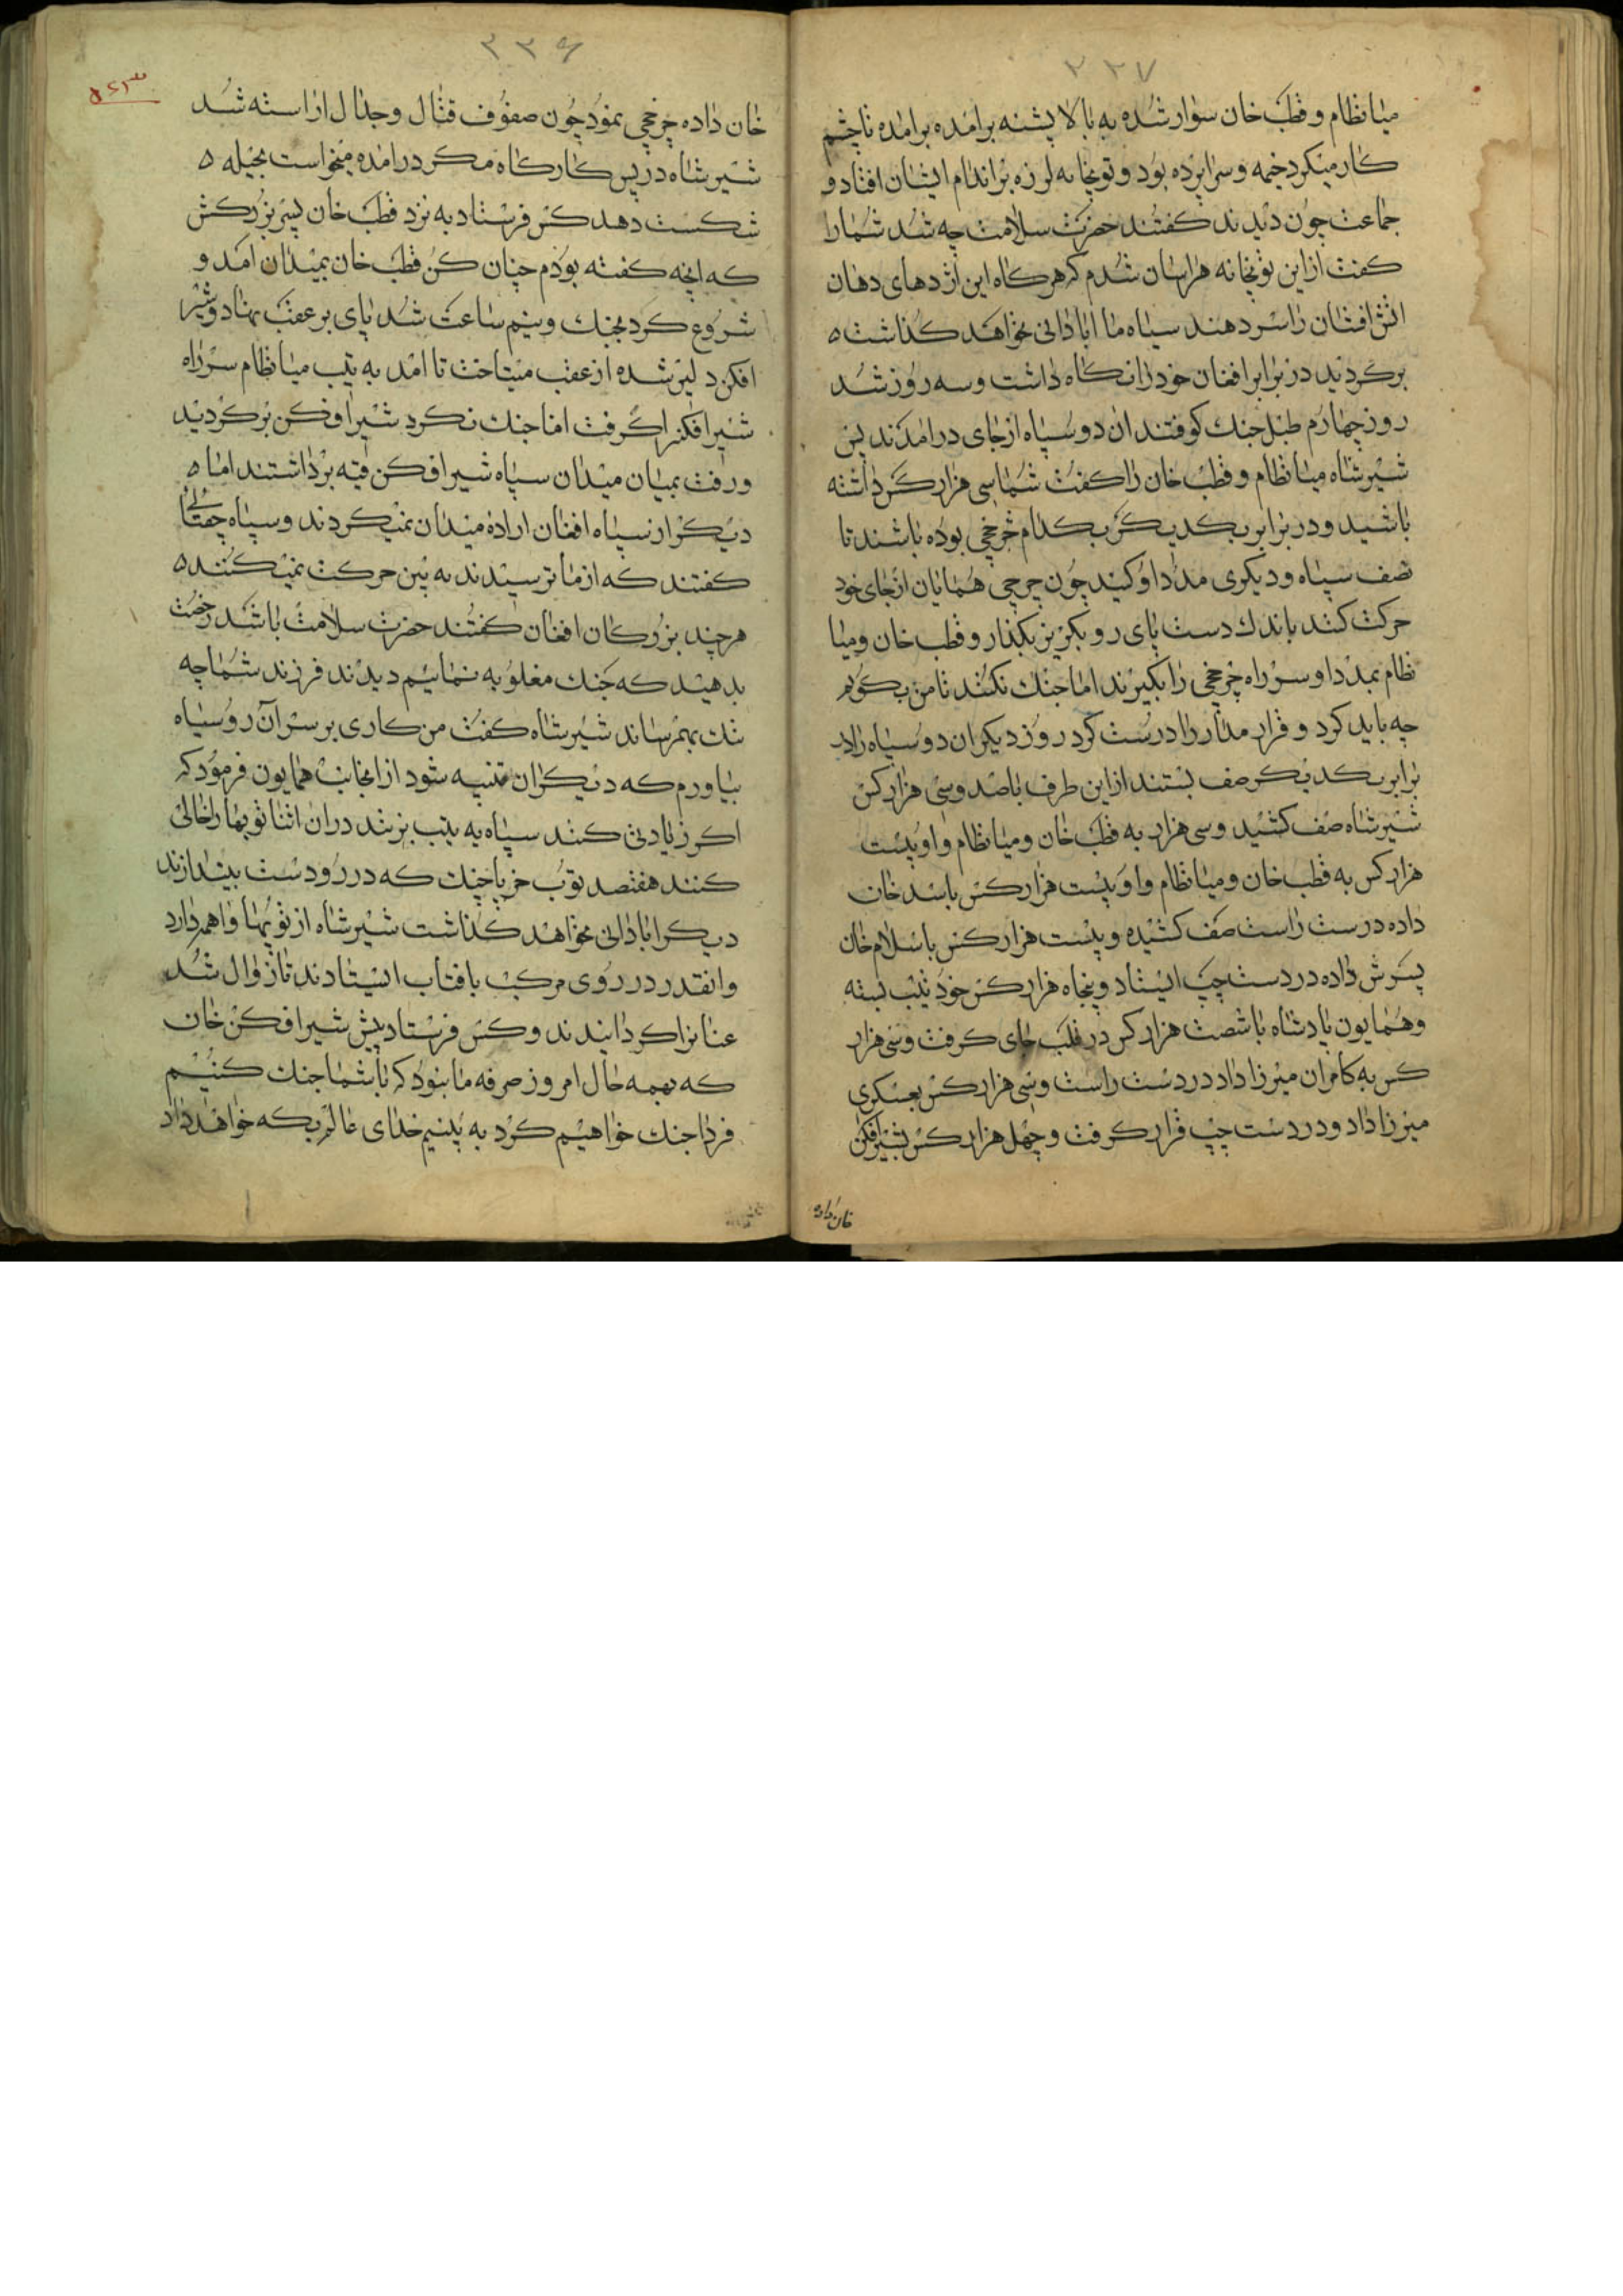 ۳۳۷
میانظام و قطب خان سوار شده به بالا پشته برامده برامده تا چشم
کار میکرد خیمه و سراپرده بود و توپخانه لرزه بر اندام ایشان افتاد و
جماعت چون دیدند کفتند حضرت سلامت چه شد شما را
کفت از این توپخانه هراسان شدم که هر کاه این اژدهای دهان
اتش افشان را سر دهند سپاه ما ابادانی نخواهد کذاشت ه
برکردید در برابر افغان خود را نکاه داشت و سه روز شد
روز چهارم طبل جنک کوفتند ان دو سپاه از جای درامدند پس
شیر شاه میانظام و قطب خان را کفت شما سی هزار کس داشته
باشید و در برابر یکدیکر یکدام چرخچی بوده باشند تا
نصف سپاه و دیکری مدد او کنید چون چرخچی همایان از جای خود
حرکت کند باندک دست پای رو بکریز بکذار و قطب خان و میا
نظام بمدد او سر راه چرخچی را بکیرند اما جنک نکنند تا من بکویم
چه باید کرد و قرار مدار را درست کرد روز دیکر ان دو سپاه را در
برابر یکدیکر صف بستند از این طرف باصد و سی هزار کس
شیر شاه صف کشید و سی هزار به قطب خان و میانظام و او بیست
هزار کس به قطب خان و میانظام و او بیست هزار کس باسد خان
داده در ست راست صف کشیده و بیست هزار کس باسلام خان
پسرش داده در دست چپ ایستاد و پنجاه هزار کس خود تیب بسته
و همایون پادشاه با شصت هزار کس در قلب جای کرفت و سی هزار
کس به کامران میرزا داد در دست راست و سی هزار کس بعسکری
میرزا داد و در دست چپ قرار کرفت و چهل هزار کس بشیر افکن
خان داده
۳۳۶
خان داده چرخچی نمود چون صفوف قتال و جدال اراسته شد
شیر شاه در پس کار کاه مکر درامده میخواست بحیله ه
شکست دهد کس فرستاد به نزد قطب خان پسر بزرکش
که انچه کفته بودم چنان کن قطب خان بمیدان امد و
شروع کرد بجنک و نیم ساعت شد پای بر عقب نهاد و شیر
افکن دلیر شده از عقب میتاخت تا امد به تیب میانظام سر راه
شیر افکن را کرفت اما جنک نکرد شیر اوفکن برکردید
و رفت بمیان میدان سپاه شیر افکن قیه برداشتند اما ه
دیکر از سپاه افغان اراده میدان نمیکردند و سپاه چغتای
کفتند که از ما ترسیدند به بین حرکت نمیکنند ه
هر چند بزرکان افغان کفتند حضرت سلامت باشد رخصت
بدهید که جنک مغلوبه نمائیم دیدند فرزند شما چه
ننک بهم رساند شیر شاه کفت من کاری بر سر آن رو سیاه
بیاورم که دیکران تنبیه شود از انجانب همایون فرمود که
اکر زیادتی کنند سپاه یه تیب بزنند در ان اثنا توپها را خالی
کنند هفتصد توپ خرپا چنک که در رو دست بیندازند
دیکر ابادانی نخواهد کذاشت شیر شاه از توپها واهمه دارد
و انقدر در روی مرکب بافتاب ایستادند تا زوال شد
عنانرا کردانیدند و کس فرستاد پیش شیر افکن خان
که بهمه حال امروز صرفه ما نبود که با شما جنک کنیم
فردا جنک خواهیم کرد به بینیم خدای عالم بکه خواهد داد